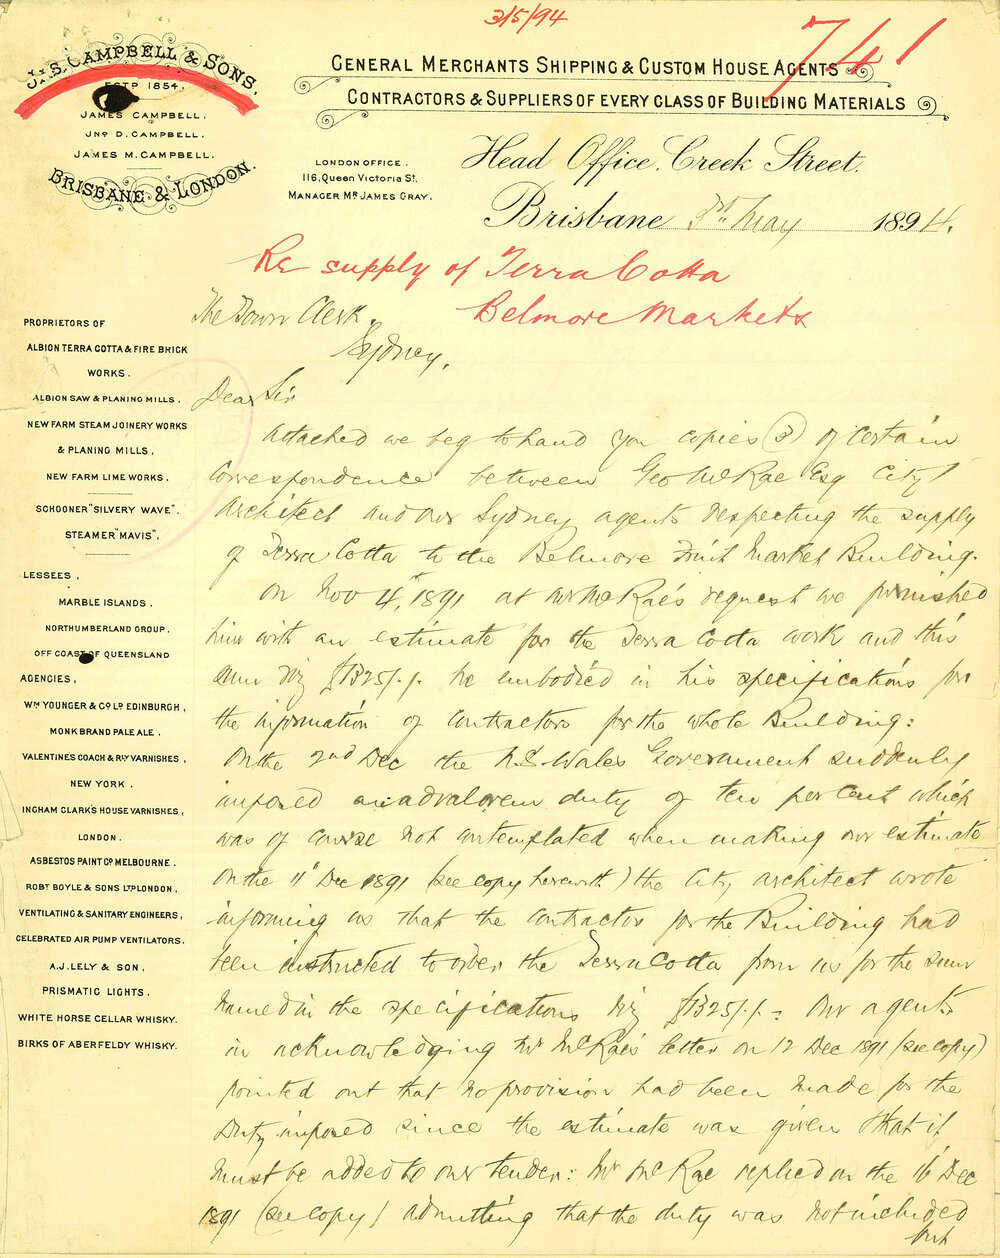 3/5/94
741
JAS. CAMPBELL & SONS.
ESTD 1854.
JAMES CAMPBELL.
JNO D. CAMPBELL.
JAMES M. CAMPBELL.
BRISBANE & LONDON.
GENERAL MERCHANTS SHIPPING & CUSTOM HOUSE AGENTS
CONTRACTORS & SUPPLIERS OF EVERY CLASS OF BUILDING MATERIALS
LONDON OFFICE.
116, QUEEN VICTORIA ST.
MANAGER MR JAMES GRAY.
Head Office, Creek Street.
Brisbane 3rd May 1894.
Re supply of Terra Cotta
Belmore Markets
PROPRIETORS OF
ALBION TERRA COTTA & FIRE BRICK
WORKS.
ALBION SAW & PLANING MILLS.
NEW FARM STEAM JOINERY WORKS
& PLANING MILLS,
NEW FARM LIME WORKS.
SCHOONER "SILVERY WAVE".
STEAMER "MAVIS".
LESSEES,
MARBLE ISLANDS.
NORTHUMBERLAND GROUP.
OFF COAST OF QUEENSLAND
AGENCIES,
WM YOUNGER & CO LD EDINBURGH,
MONK BRAND PALE ALE.
VALENTINE'S COACH & RLY VARNISHES,
NEW YORK.
INGHAM CLARK'S HOUSE VARNISHES,
LONDON.
ASBESTOS PAINT CO MELBOURNE.
ROBT BOYLE & SONS LTD LONDON,
VENTILATING & SANITARY ENGINEERS,
CELEBRATED AIR PUMP VENTILATORS.
A.J. LELY & SON,
PRISMATIC LIGHTS.
WHITE HORSE CELLAR WHISKY.
BIRKS OF ABERFELDY WHISKY.
The Town Clerk,
Sydney.
Dear Sir
Attached we beg to hand you copies (3) of certain
correspondence between Geo McRae Esq City
Architect and our Sydney agents respecting the supply
of Terra Cotta to the Belmore Fruit Market Building.
On Nov 4th, 1891 at Mr McRae's request we furnished
him with an estimate for the Terra Cotta work and this
sum viz £1325/-/- he embodied in his specifications for
the information of Contractors for the whole Building:
On the 2nd Dec the N.S. Wales Government suddenly
imposed an advalorem duty of ten per cent which
was of course not contemplated when making our estimate
On the 11th Dec 1891 (see copy herewith) the City architect wrote
informing us that the Contractor for the Building had
been instructed to order the Terra Cotta from us for the sum
named in the specifications viz £1325/-/- Our agents
in acknowledging Mr McRae's letter on 12 Dec 1891 (see copy)
pointed out that no provision had been made for the
Duty imposed since the estimate was given that it
must be added to our tender: Mr McRae replied on the 16 Dec
1891 (see copy) admitting that the duty was not included
but